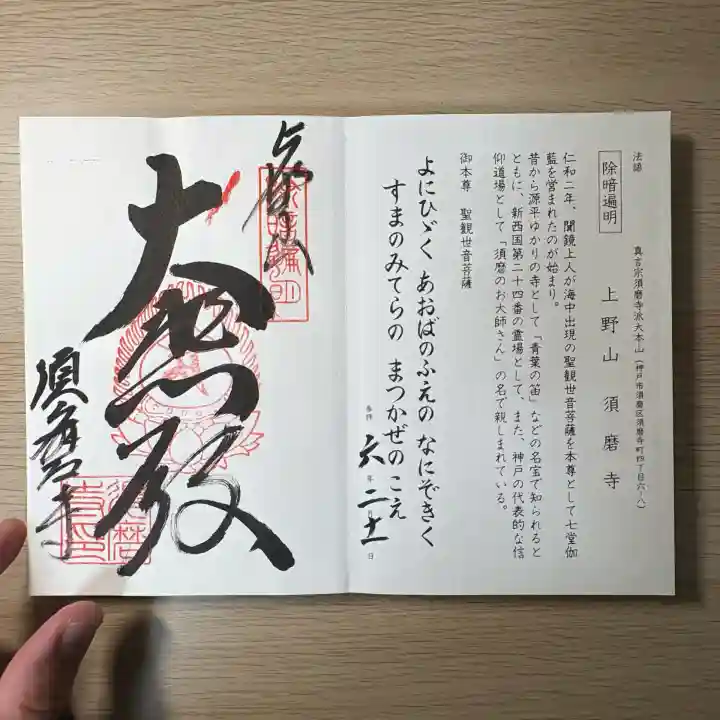 法語
除暗遍明
真言宗須磨寺派大本山(神戸市須磨区須磨寺町四丁目六ー八)
上野山 須磨寺
仁和二年、聞鏡上人が海中出現の聖観世音菩薩を本尊として七堂伽
藍を営まれたのが始まり。
昔から源平ゆかりの寺として「青葉の笛」などの名宝で知られると
ともに、新西国第二十四番の霊場として、また、神戸の代表的な信
仰道場として「須磨のお大師さん」の名で親しまれている。
御本尊 聖観世音菩薩
よにひゞく あおばのふえの なにぞきく
すまのみてらの まつかぜのこえ
六年二月十一日
除暗遍明
須磨寺